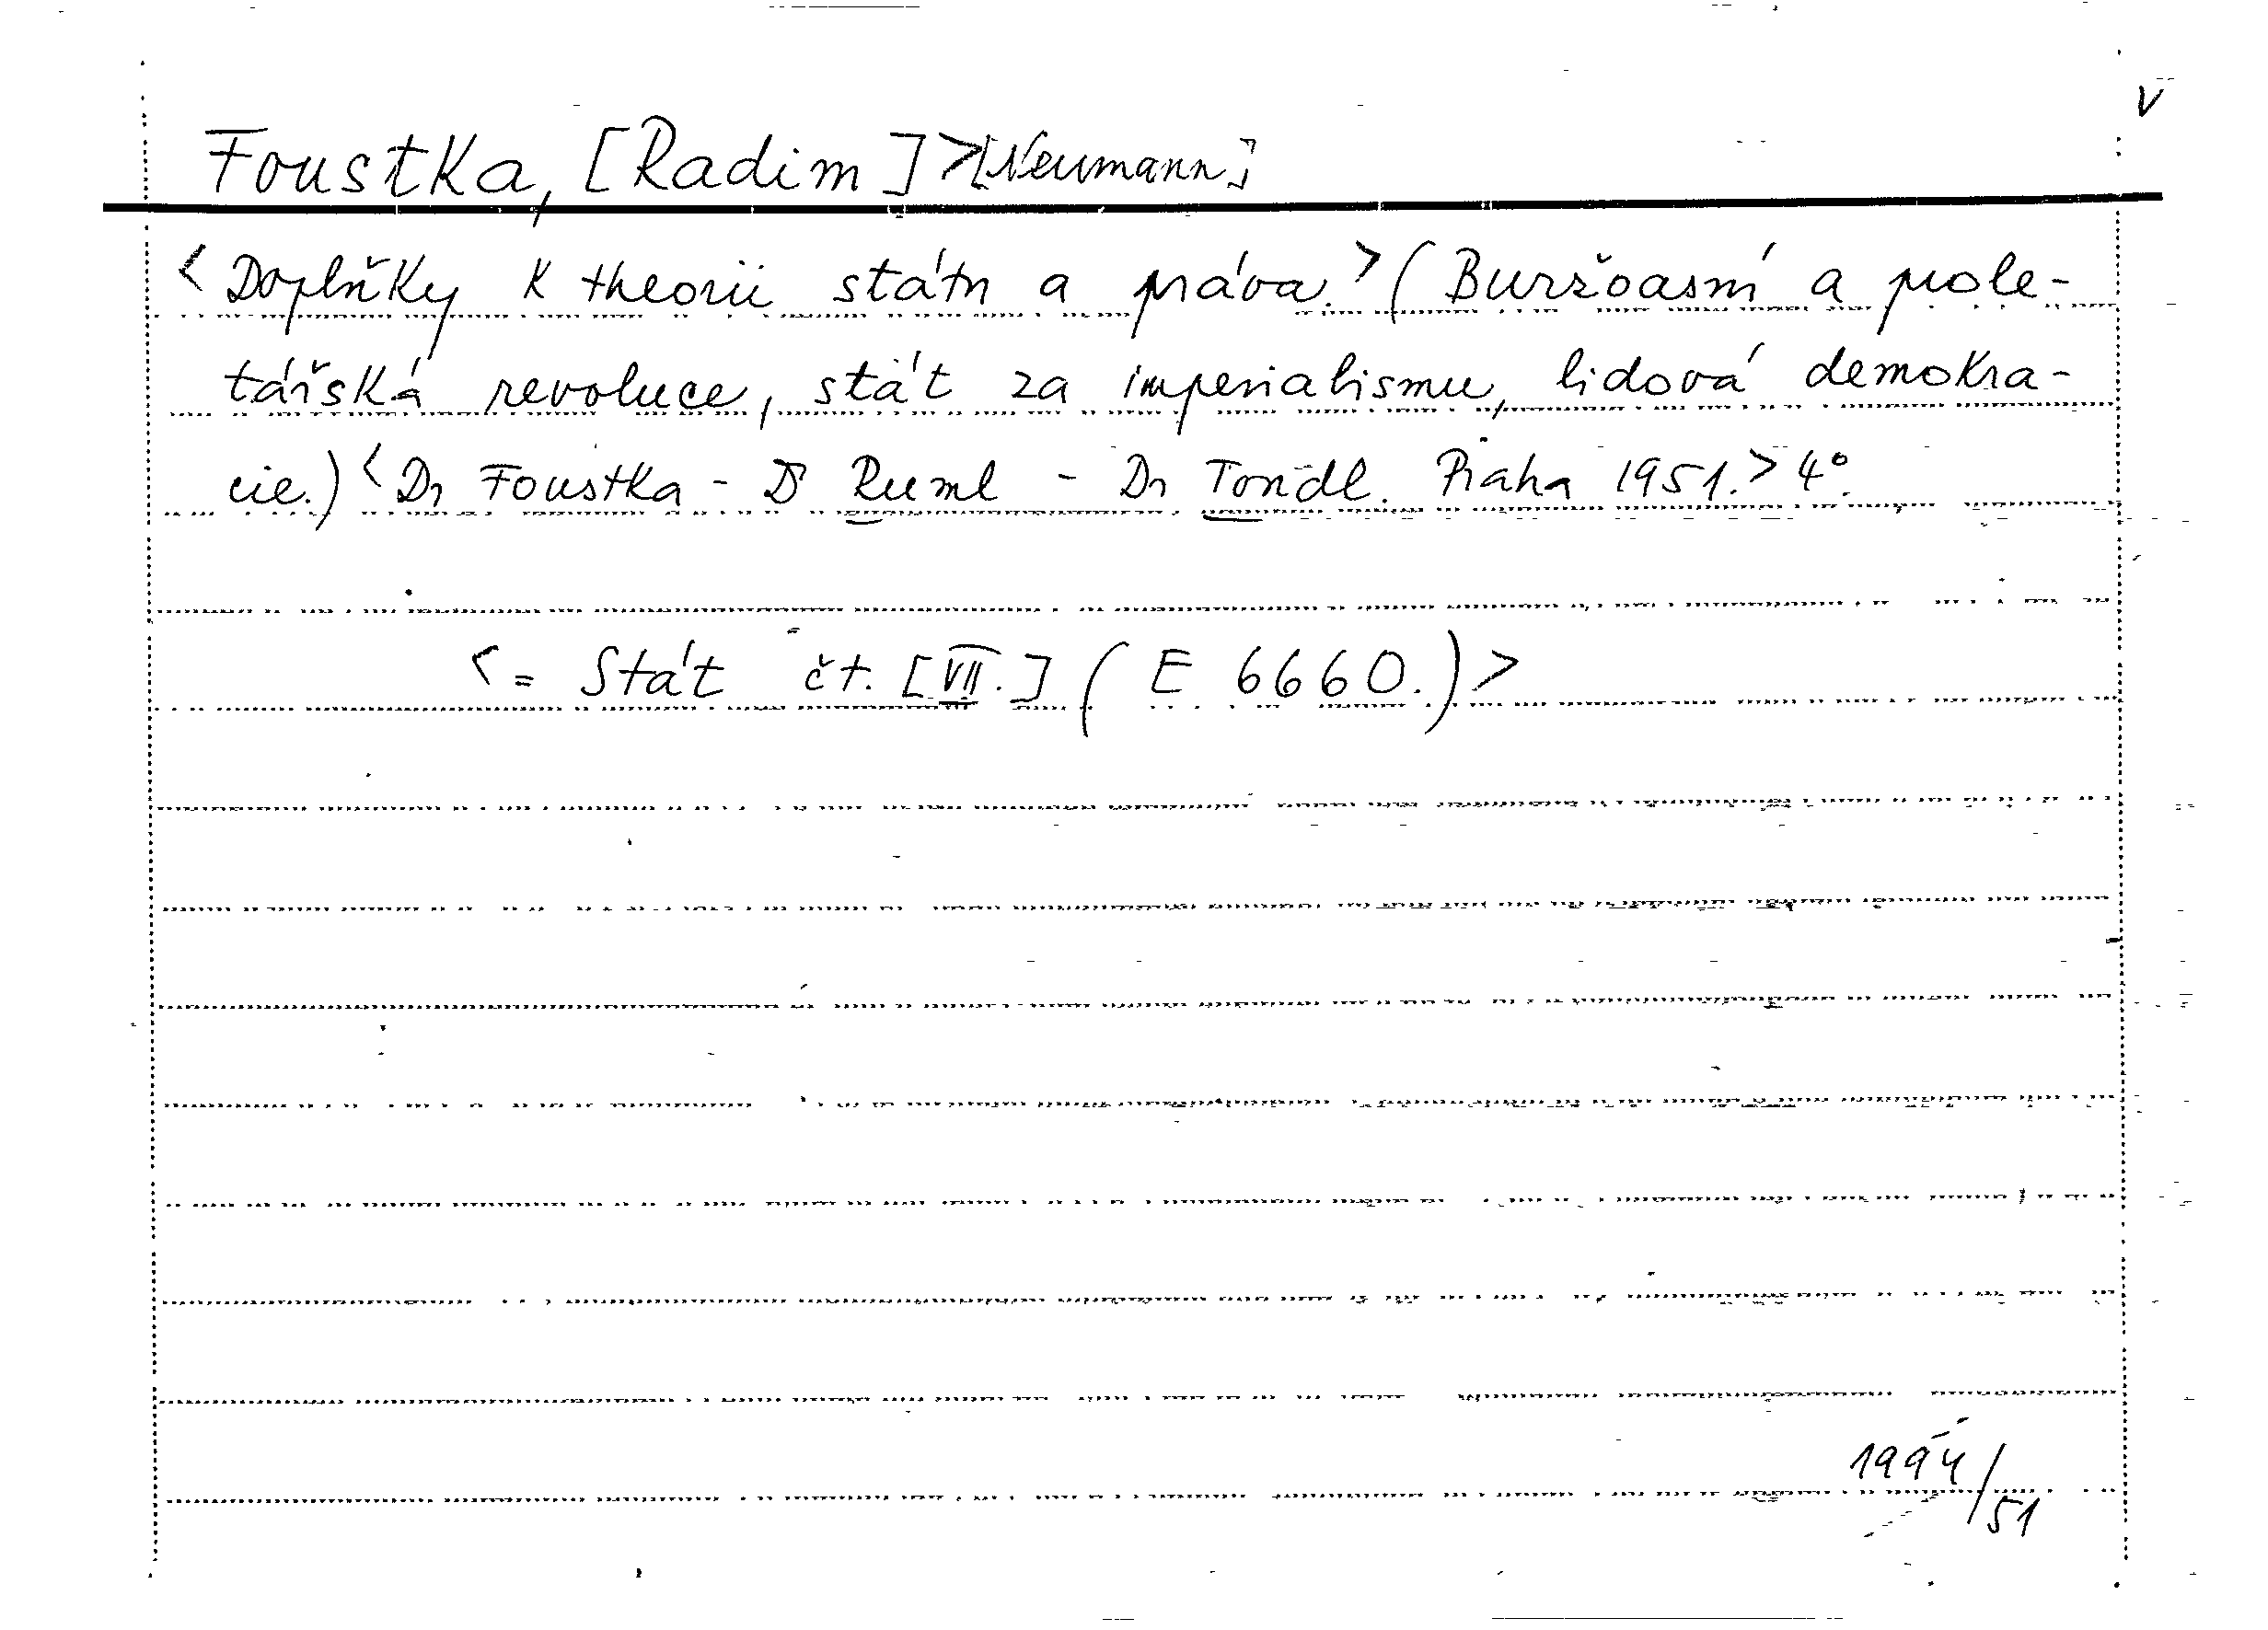 v
Foustka, [Radim] >[Neumann]
<Doplňky k theorii státu a práva.> (Buržoasní a prole-
tářská revoluce, stát za imperialismu, lidová demokra-
cie.) <Dr Foustka - Dr Ruml - Dr Tondl. Praha 1951.> 4°.
<= Stát čt. [VII.] (E 6660.)>
1994/51